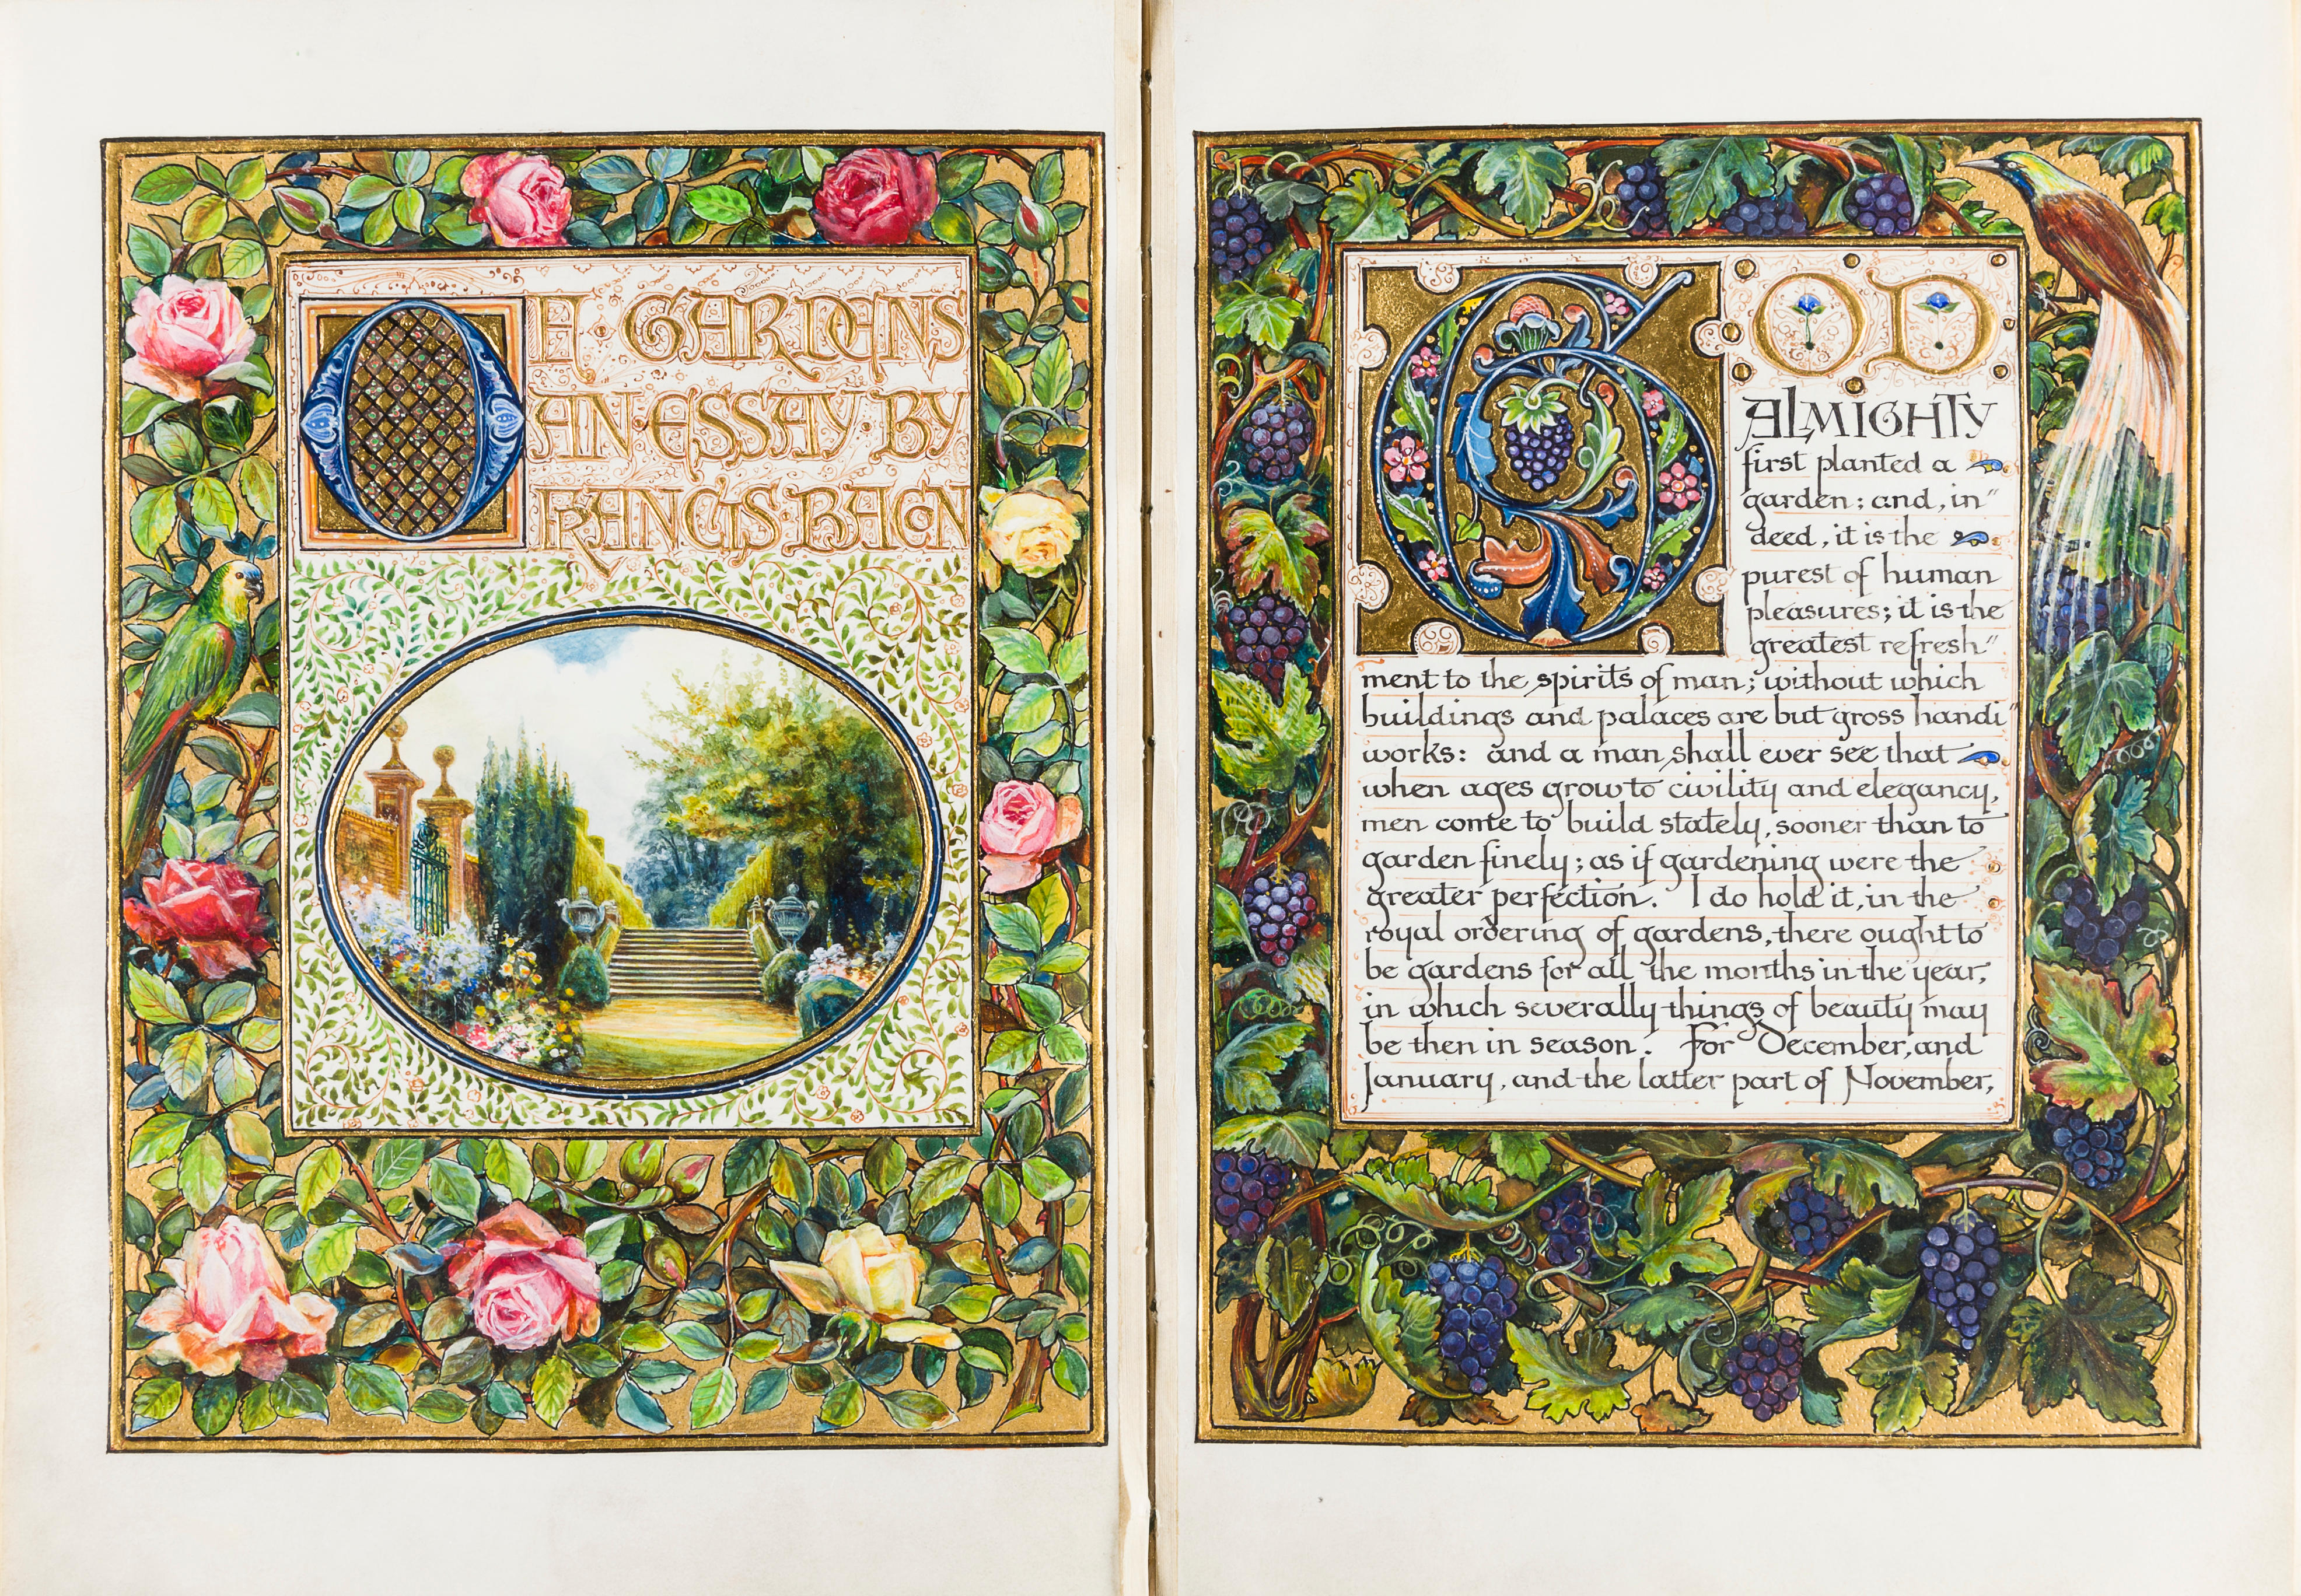 OF GARDENS
AN ESSAY BY
FRANCIS BACON
GOD
ALMIGHTY
first planted a
garden; and, in"
deed, it is the
purest of human
pleasures; it is the
greatest refresh"
ment to the spirits of man; without which
buildings and palaces are but gross handi"
works: and a man shall ever see that
when ages grow to civility and elegancy,
men come to build stately, sooner than to
garden finely; as if gardening were the
greater perfection. I do hold it, in the
royal ordering of gardens, there ought to
be gardens for all the months in the year,
in which severally things of beauty may
be then in season. For December, and
January, and the latter part of November,